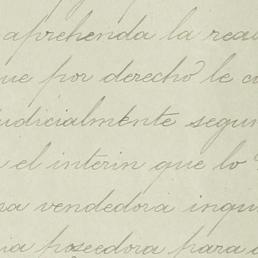 aprehenda la real
ue por derecho le c
udicialmente segu
el interin que lo
sa vendedora inqu
ia poseedora para